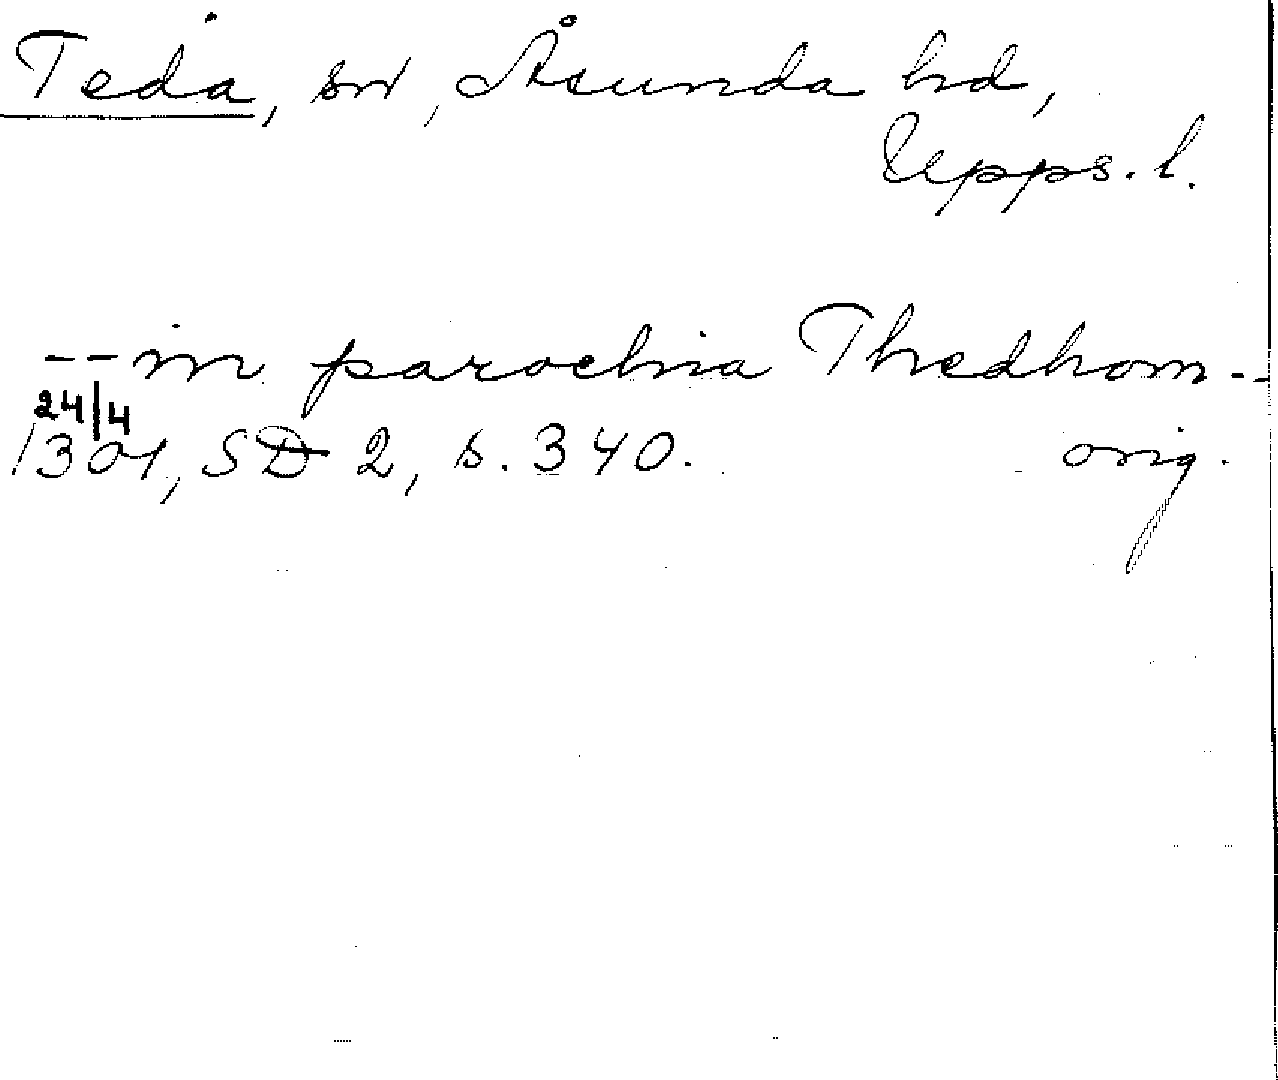 Teda, sn, Åsunda hd,
Upps. l.
-- in parochia Thedhom --
24/4
1301, SD 2, s. 340. orig.